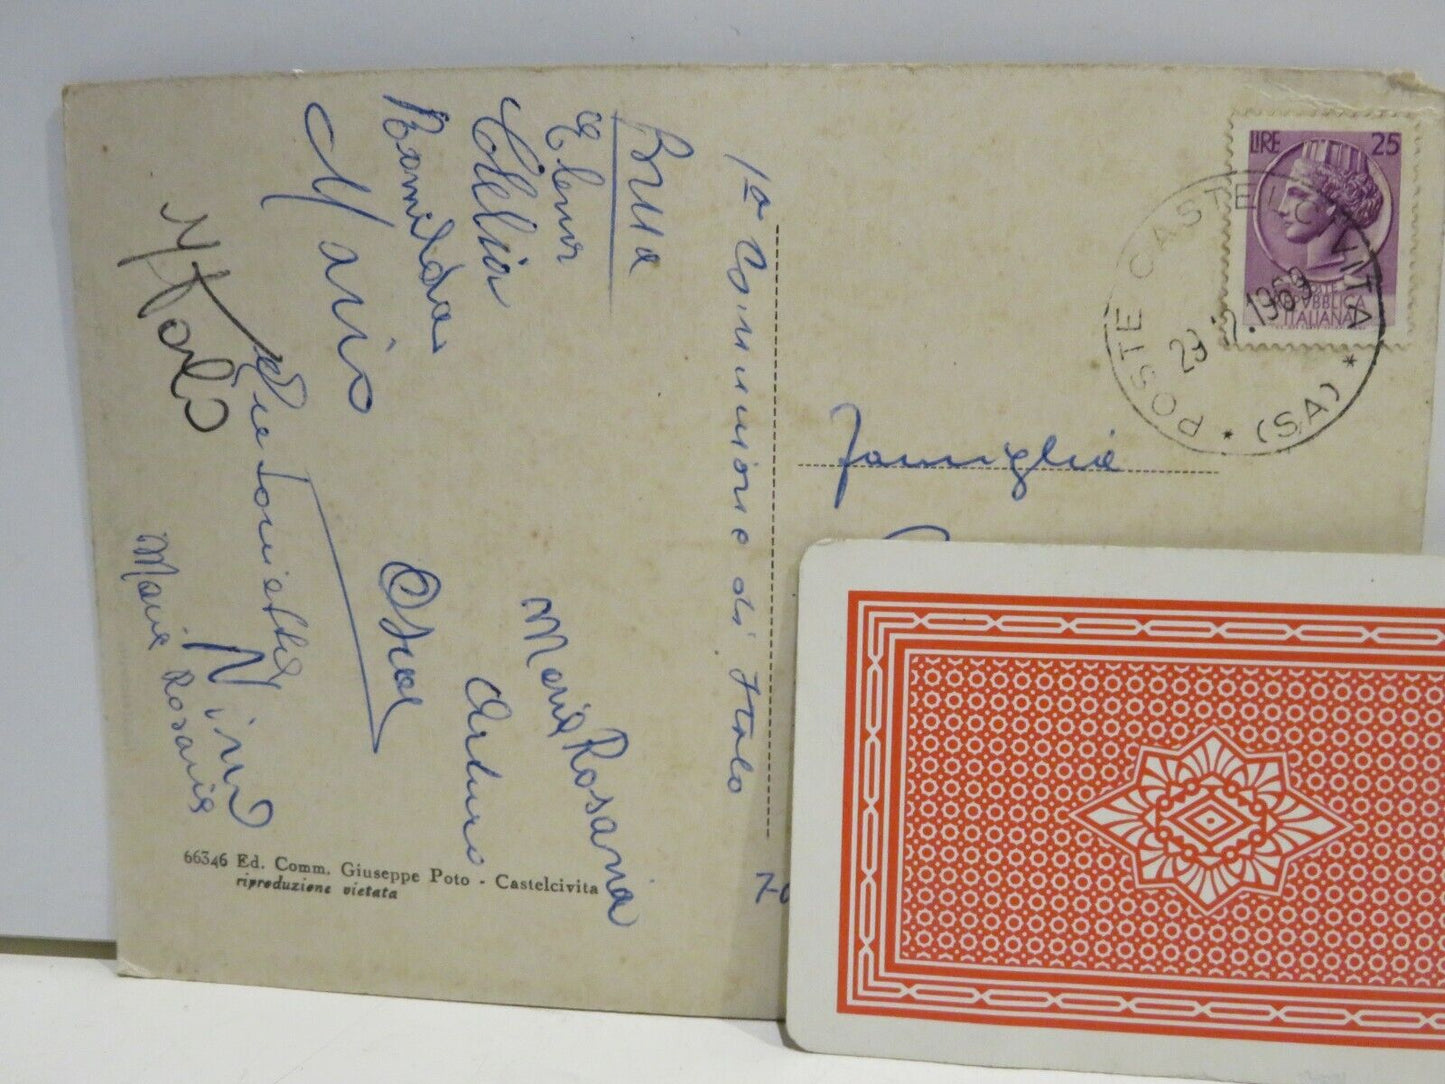 1ª Comunione di Italo
Bruna
e Elena
Clelia
Romilda
Mario
Maria Rosaria
Arturo
Oscar
Antonietta
Nino
Italo
Maria Rosaria
66346 Ed. Comm. Giuseppe Poto - Castelcivita
riproduzione vietata
LIRE 25
POSTE
REPVBBLICA
ITALIANA
POSTE CASTELCIVITA
(SA)
29.12.1969
Famiglia